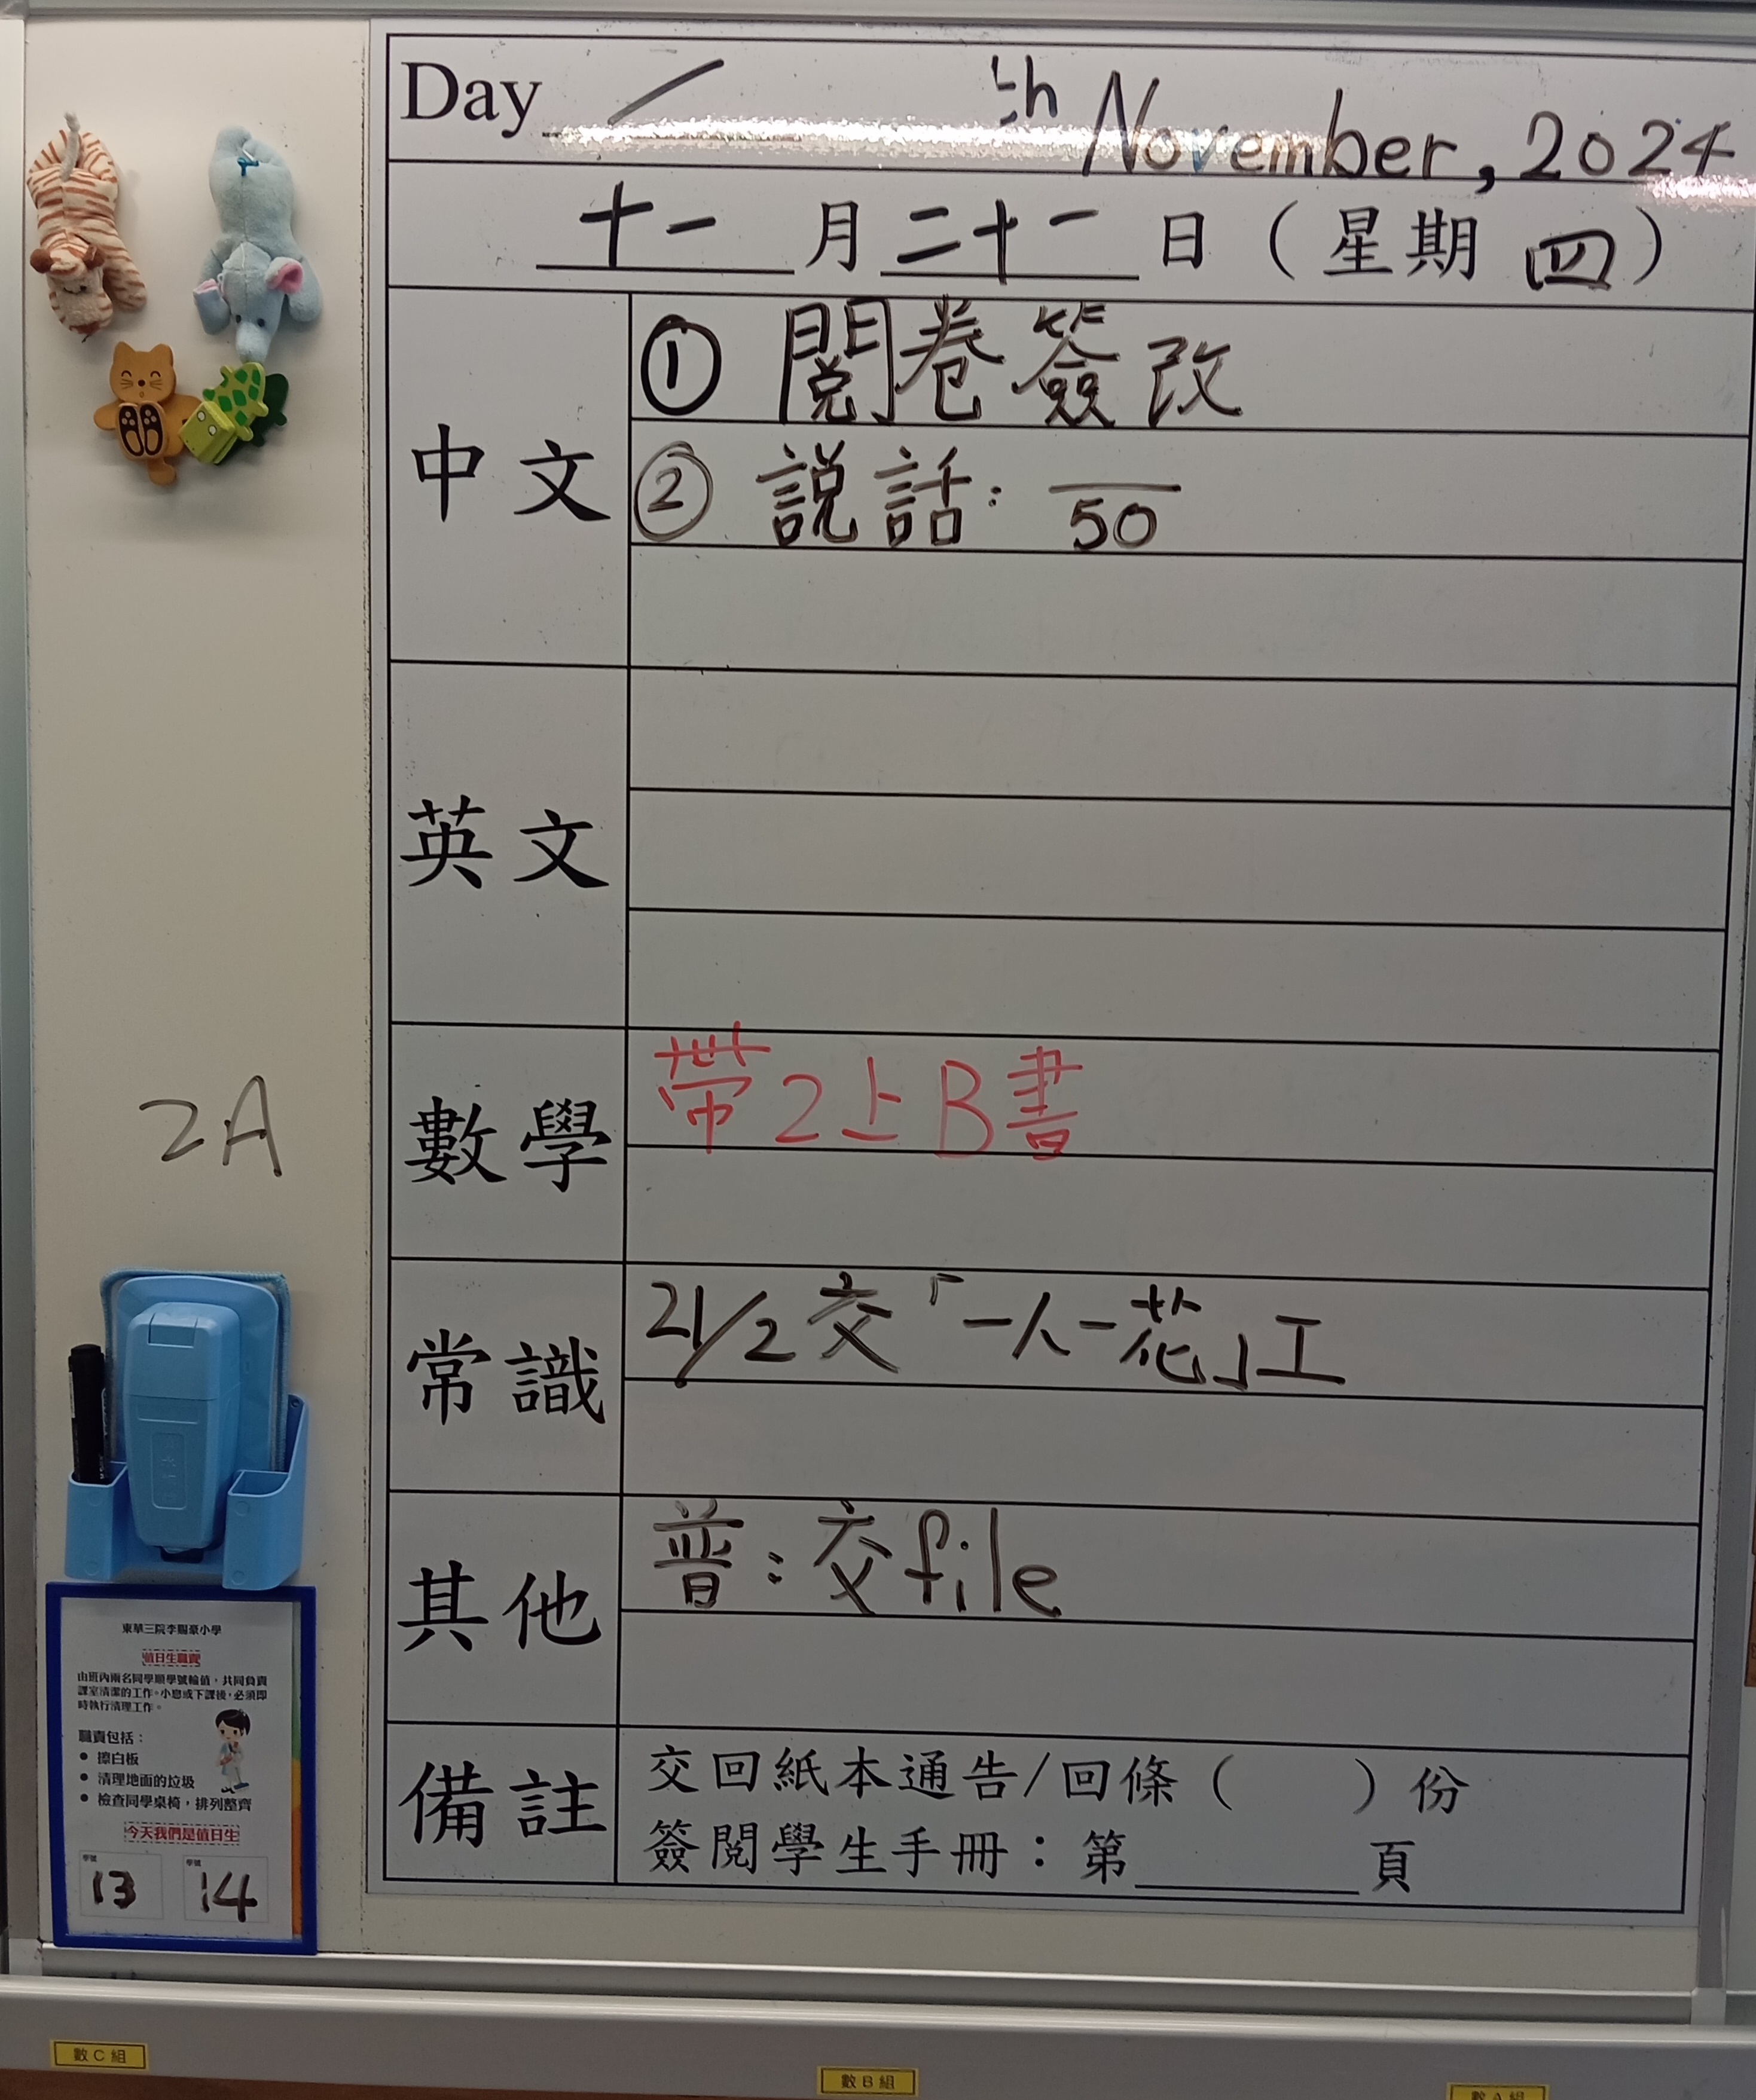 Day /
th November, 2024
十一 月 二十一 日（星期 四）
中文
① 閱卷簽改
② 說話： /50
英文
數學
帶2上B書
常識
21/2 交「一人一花」工
其他
普：交file
備註
交回紙本通告/回條（ ）份
簽閱學生手冊：第 頁
2A
東華三院李賜豪小學
值日生職責
由班內兩名同學順學號輪值，共同負責
課室清潔的工作。小息或下課後，必須即
時執行清理工作。
職責包括：
● 擦白板
● 清理地面的垃圾
● 檢查同學桌椅，排列整齊
今天我們是值日生
學號 學號
13 14
數C組
數B組
數A組